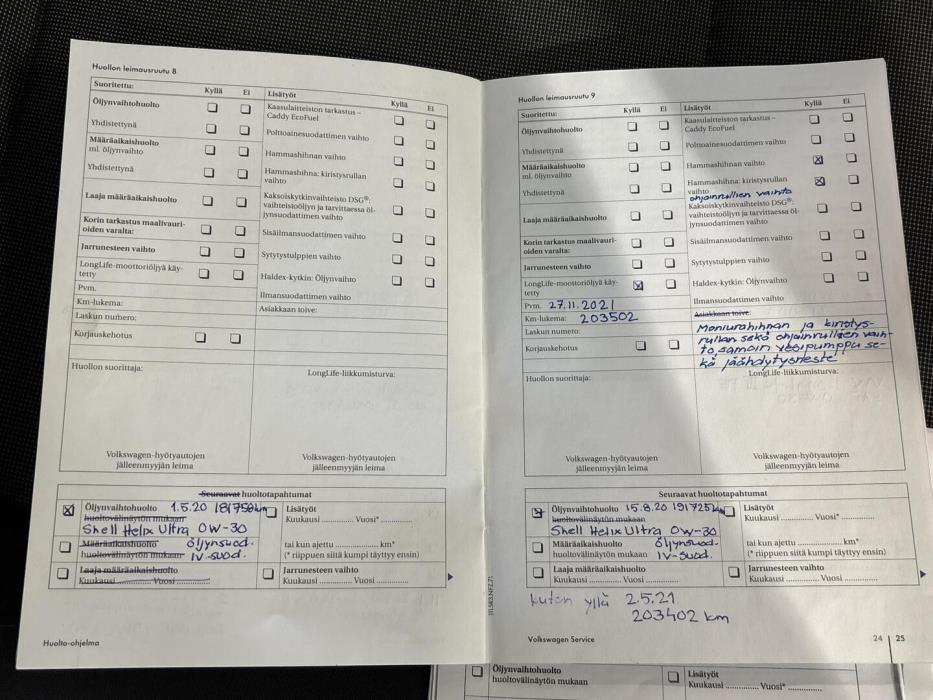 Huollon leimausruutu 8
Suoritettu: Kyllä Ei Lisätyöt Kyllä Ei
Öljynvaihtohuolto
Kaasulaitteiston tarkastus –
Caddy EcoFuel
Yhdistettynä
Polttoainesuodattimen vaihto
Määräaikaishuolto
ml. öljynvaihto
Hammashihnan vaihto
Yhdistettynä
Hammashihna: kiristysrullan
vaihto
Laaja määräaikaishuolto
Kaksoiskytkinvaihteisto DSG®:
vaihteistoöljyn ja tarvittaessa öl-
jynsuodattimen vaihto
Korin tarkastus maalivauri-
oiden varalta:
Sisäilmansuodattimen vaihto
Jarrunesteen vaihto
Sytytystulppien vaihto
LongLife-moottoriöljyä käy-
tetty
Haldex-kytkin: Öljynvaihto
Pvm.
Ilmansuodattimen vaihto
Km-lukema:
Asiakkaan toive:
Laskun numero:
Korjauskehotus
Huollon suorittaja:
LongLife-liikkumisturva:
Volkswagen-hyötyautojen
jälleenmyyjän leima
Volkswagen-hyötyautojen
jälleenmyyjän leima
Seuraavat huoltotapahtumat
Öljynvaihtohuolto 1.5.20 181750km
huoltovälinäytön mukaan
Shell Helix Ultra 0W-30
Määräaikaishuolto öljynsuod.
huoltovälinäytön mukaan IV-suod.
Laaja määräaikaishuolto
Kuukausi Vuosi
Lisätyöt
Kuukausi ............ Vuosi* ............
tai kun ajettu ............ km*
(* riippuen siitä kumpi täyttyy ensin)
Jarrunesteen vaihto
Kuukausi ............ Vuosi ............
Huolto-ohjelma
Huollon leimausruutu 9
Suoritettu: Kyllä Ei Lisätyöt Kyllä Ei
Öljynvaihtohuolto
Kaasulaitteiston tarkastus –
Caddy EcoFuel
Yhdistettynä
Polttoainesuodattimen vaihto
Määräaikaishuolto
ml. öljynvaihto
Hammashihnan vaihto
Yhdistettynä
Hammashihna: kiristysrullan
vaihto ohjainrullien vaihto
Laaja määräaikaishuolto
Kaksoiskytkinvaihteisto DSG®:
vaihteistoöljyn ja tarvittaessa öl-
jynsuodattimen vaihto
Korin tarkastus maalivauri-
oiden varalta:
Sisäilmansuodattimen vaihto
Jarrunesteen vaihto
Sytytystulppien vaihto
LongLife-moottoriöljyä käy-
tetty
Haldex-kytkin: Öljynvaihto
Pvm. 27.11.2021
Ilmansuodattimen vaihto
Km-lukema: 203502
Asiakkaan toive:
Laskun numero:
Moniurahihnan ja kiristys-
rullan sekä ohjainrullien vaih-
to, samoin vesipumppu se-
kä jäähdytysneste
Korjauskehotus
Huollon suorittaja:
LongLife-liikkumisturva:
Volkswagen-hyötyautojen
jälleenmyyjän leima
Volkswagen-hyötyautojen
jälleenmyyjän leima
Seuraavat huoltotapahtumat
Öljynvaihtohuolto 15.8.20 191725km
huoltovälinäytön mukaan
Shell Helix Ultra 0W-30
Määräaikaishuolto öljynsuod.
huoltovälinäytön mukaan IV-suod.
Laaja määräaikaishuolto
Kuukausi ............ Vuosi ............
Lisätyöt
Kuukausi ............ Vuosi* ............
tai kun ajettu ............ km*
(* riippuen siitä kumpi täyttyy ensin)
Jarrunesteen vaihto
Kuukausi ............ Vuosi ............
kuten yllä 2.5.21
203402 km
Volkswagen Service
24 | 25
Öljynvaihtohuolto
huoltovälinäytön mukaan
Lisätyöt
Kuukausi ............ Vuosi* ............